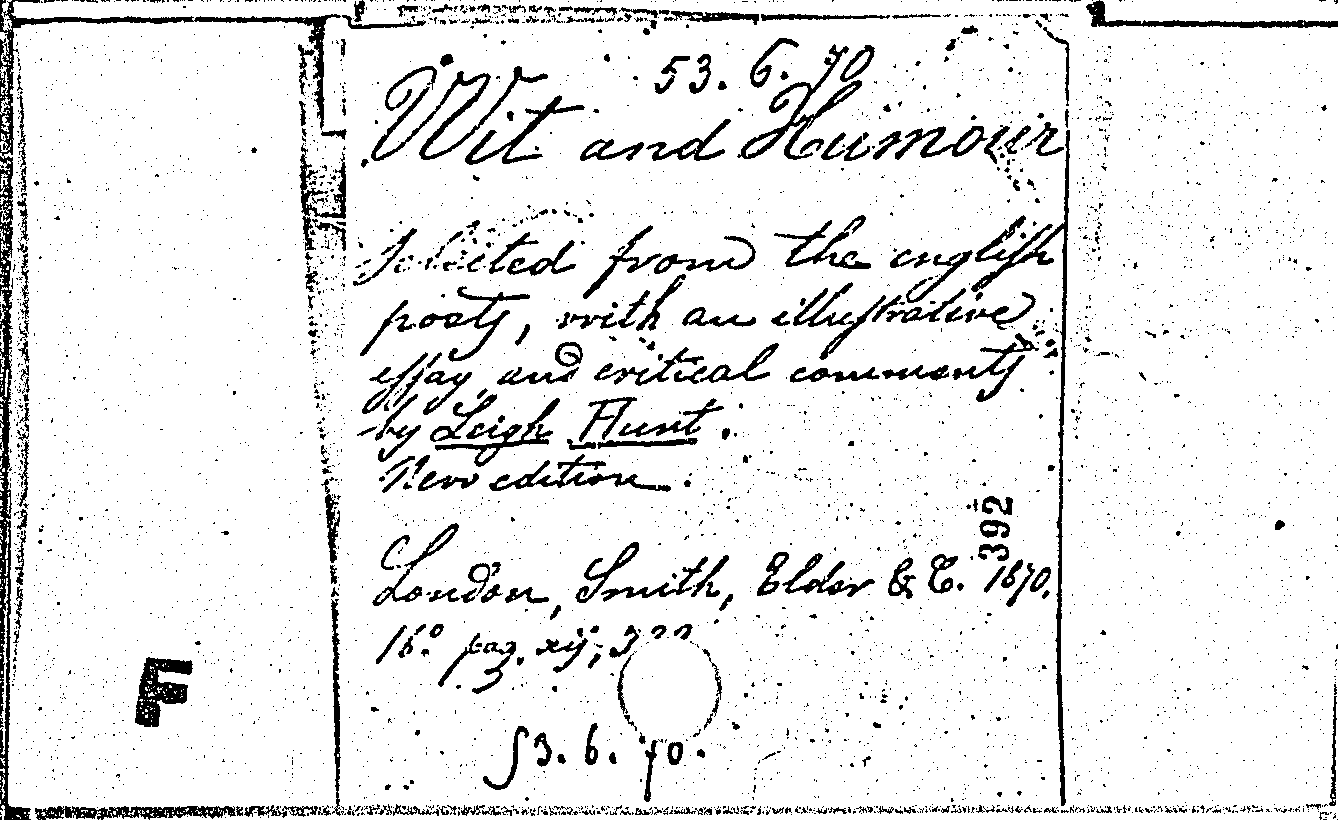 53. 6. 70
Wit and Humour
Selected from the english
poets, with an illustrative
essay and critical comments
by Leigh Hunt.
New edition.
392
London, Smith, Elder & C. 1870.
16º pag. xij;
53. 6. 70.
F